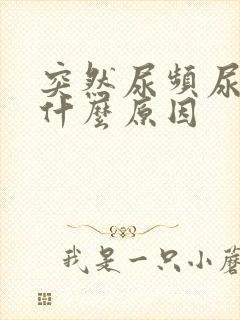 突然尿頻尿
什麼原因
我是一只小蘑